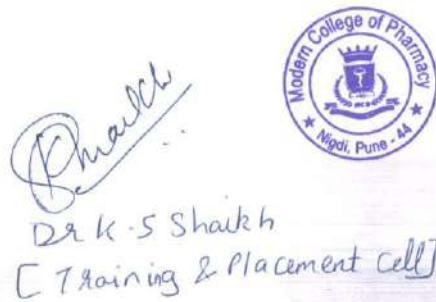 Modern College of Pharmacy
★ Nigdi, Pune - 44 ★
Shaikh
Dr K.S Shaikh
[Training & Placement Cell]